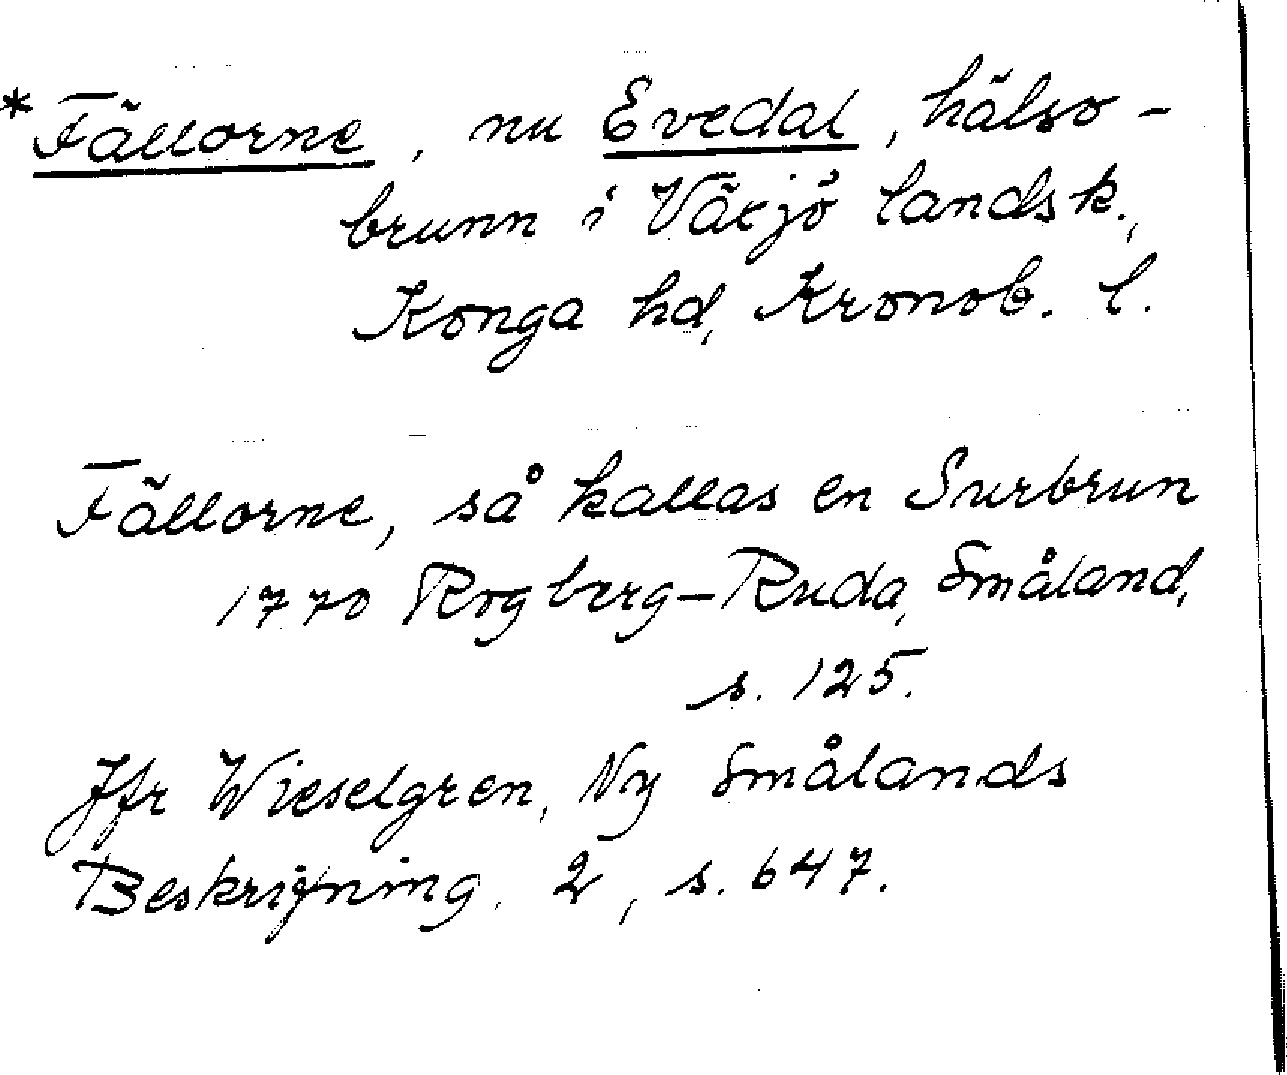 *Fällorne, nu Evedal, hälso-
brunn i Växjö landsk.,
Konga hd, Kronob. l.
Fällorne, så kallas en Surbrun
1770 Rogberg-Ruda, Småland,
s. 125.
Jfr Wieselgren, Ny Smålands
Beskrifning. 2, s. 647.